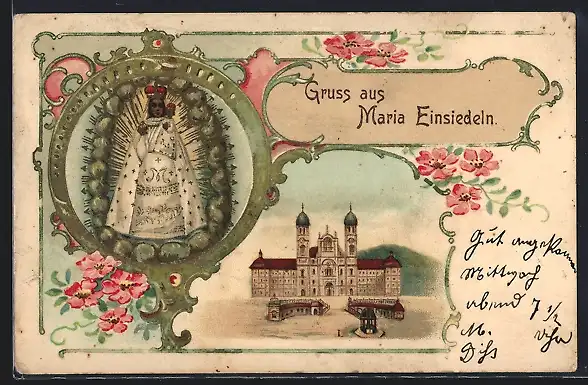 Gruss aus
Maria Einsiedeln.
M
Gut angekommen
Mittwoch
abend 7 1/2
Uhr
M.